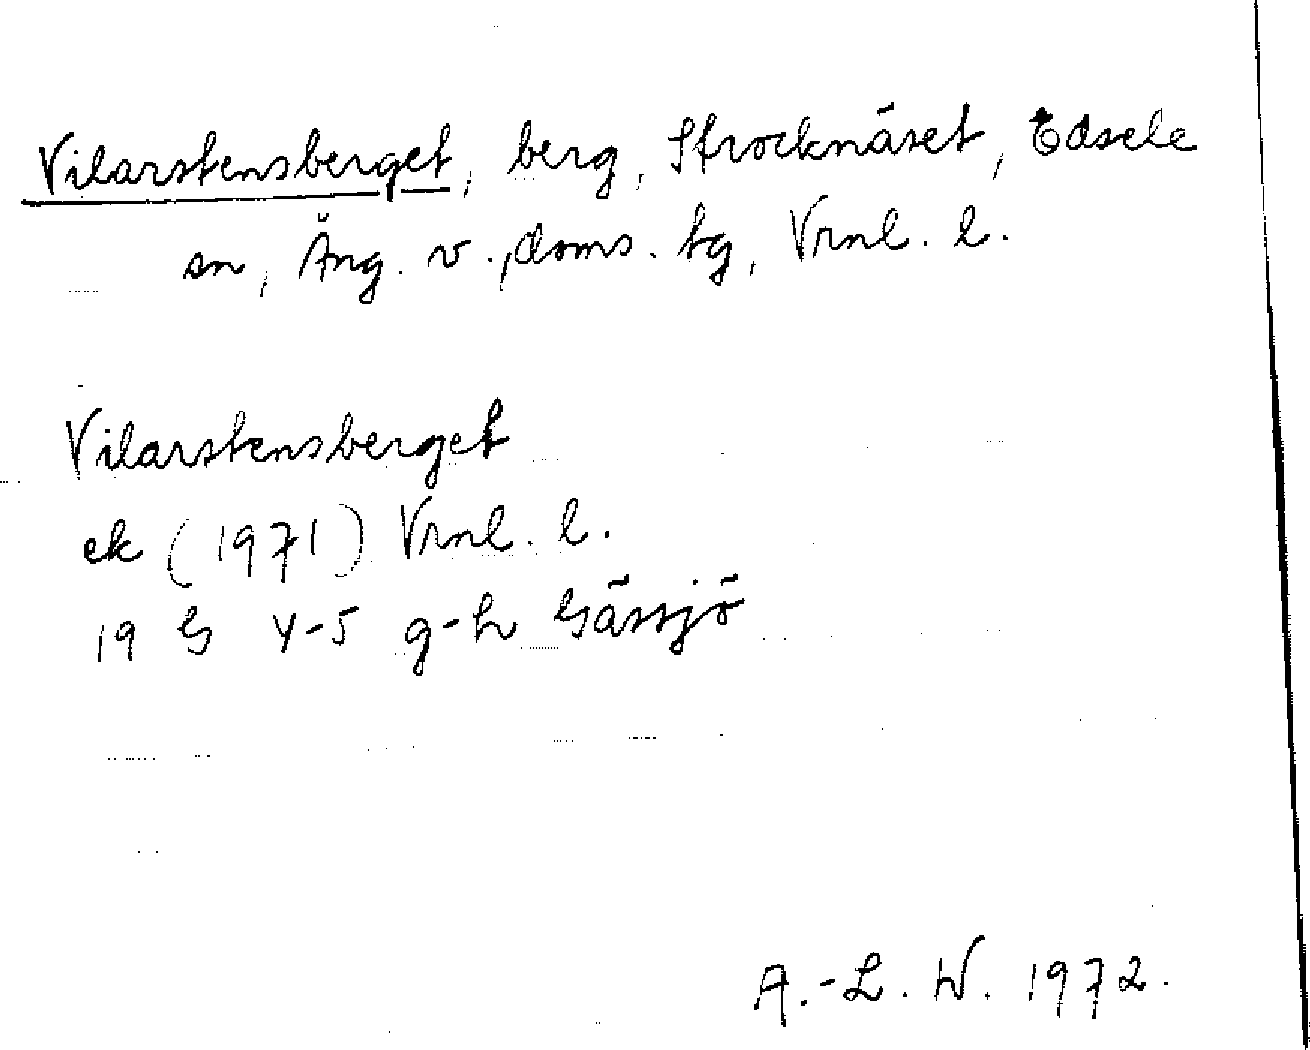 Vilarstensberget, berg, Strocknäset, Edsele
sn, Ång. v., doms. tg, Vrnl. l.
Vilarstensberget
ek (1971) Vrnl. l.
19 G 4-5 g-h Gässjö
A.-L. W. 1972.